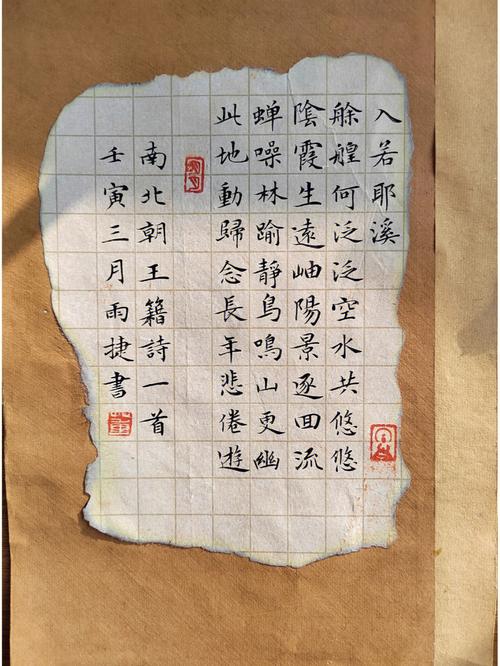 入若耶溪
艅艎何泛泛空水共悠悠
陰霞生遠岫陽景逐回流
蝉噪林踰靜鳥鳴山更幽
此地動歸念長年悲倦遊
南北朝王籍詩一首
壬寅三月雨捷書